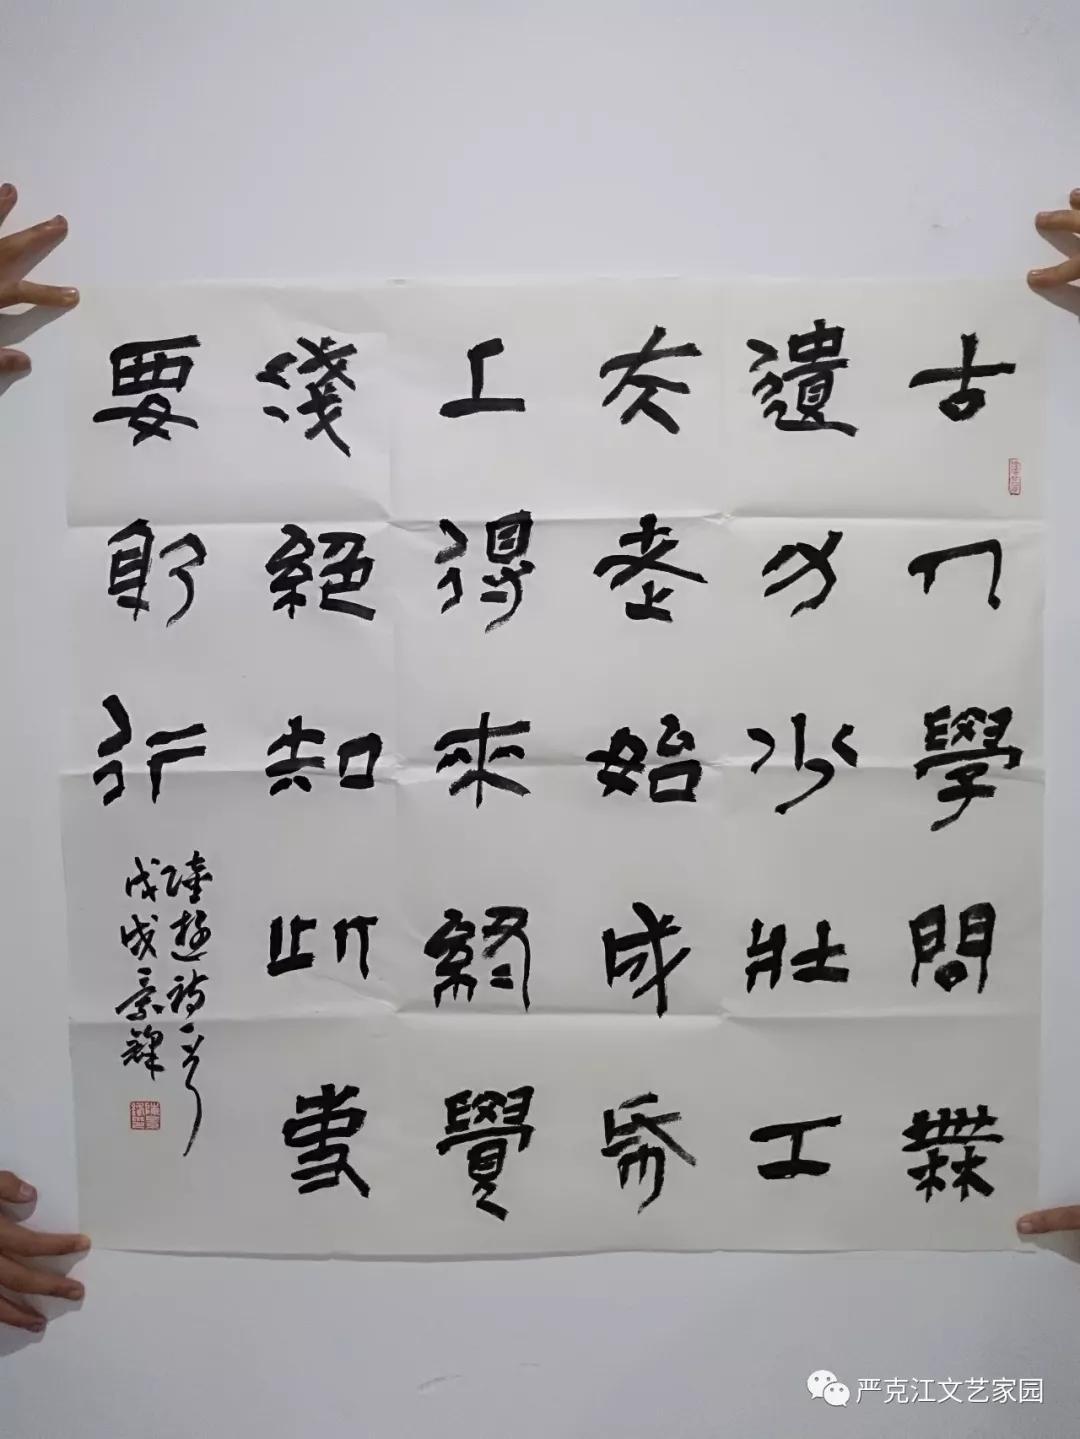 古人學問無
遺力少壯工
夫老始成紙
上得來終覺
淺絕知此事
要躬行
陸遊詩一首
戊戌
严克江文艺家园